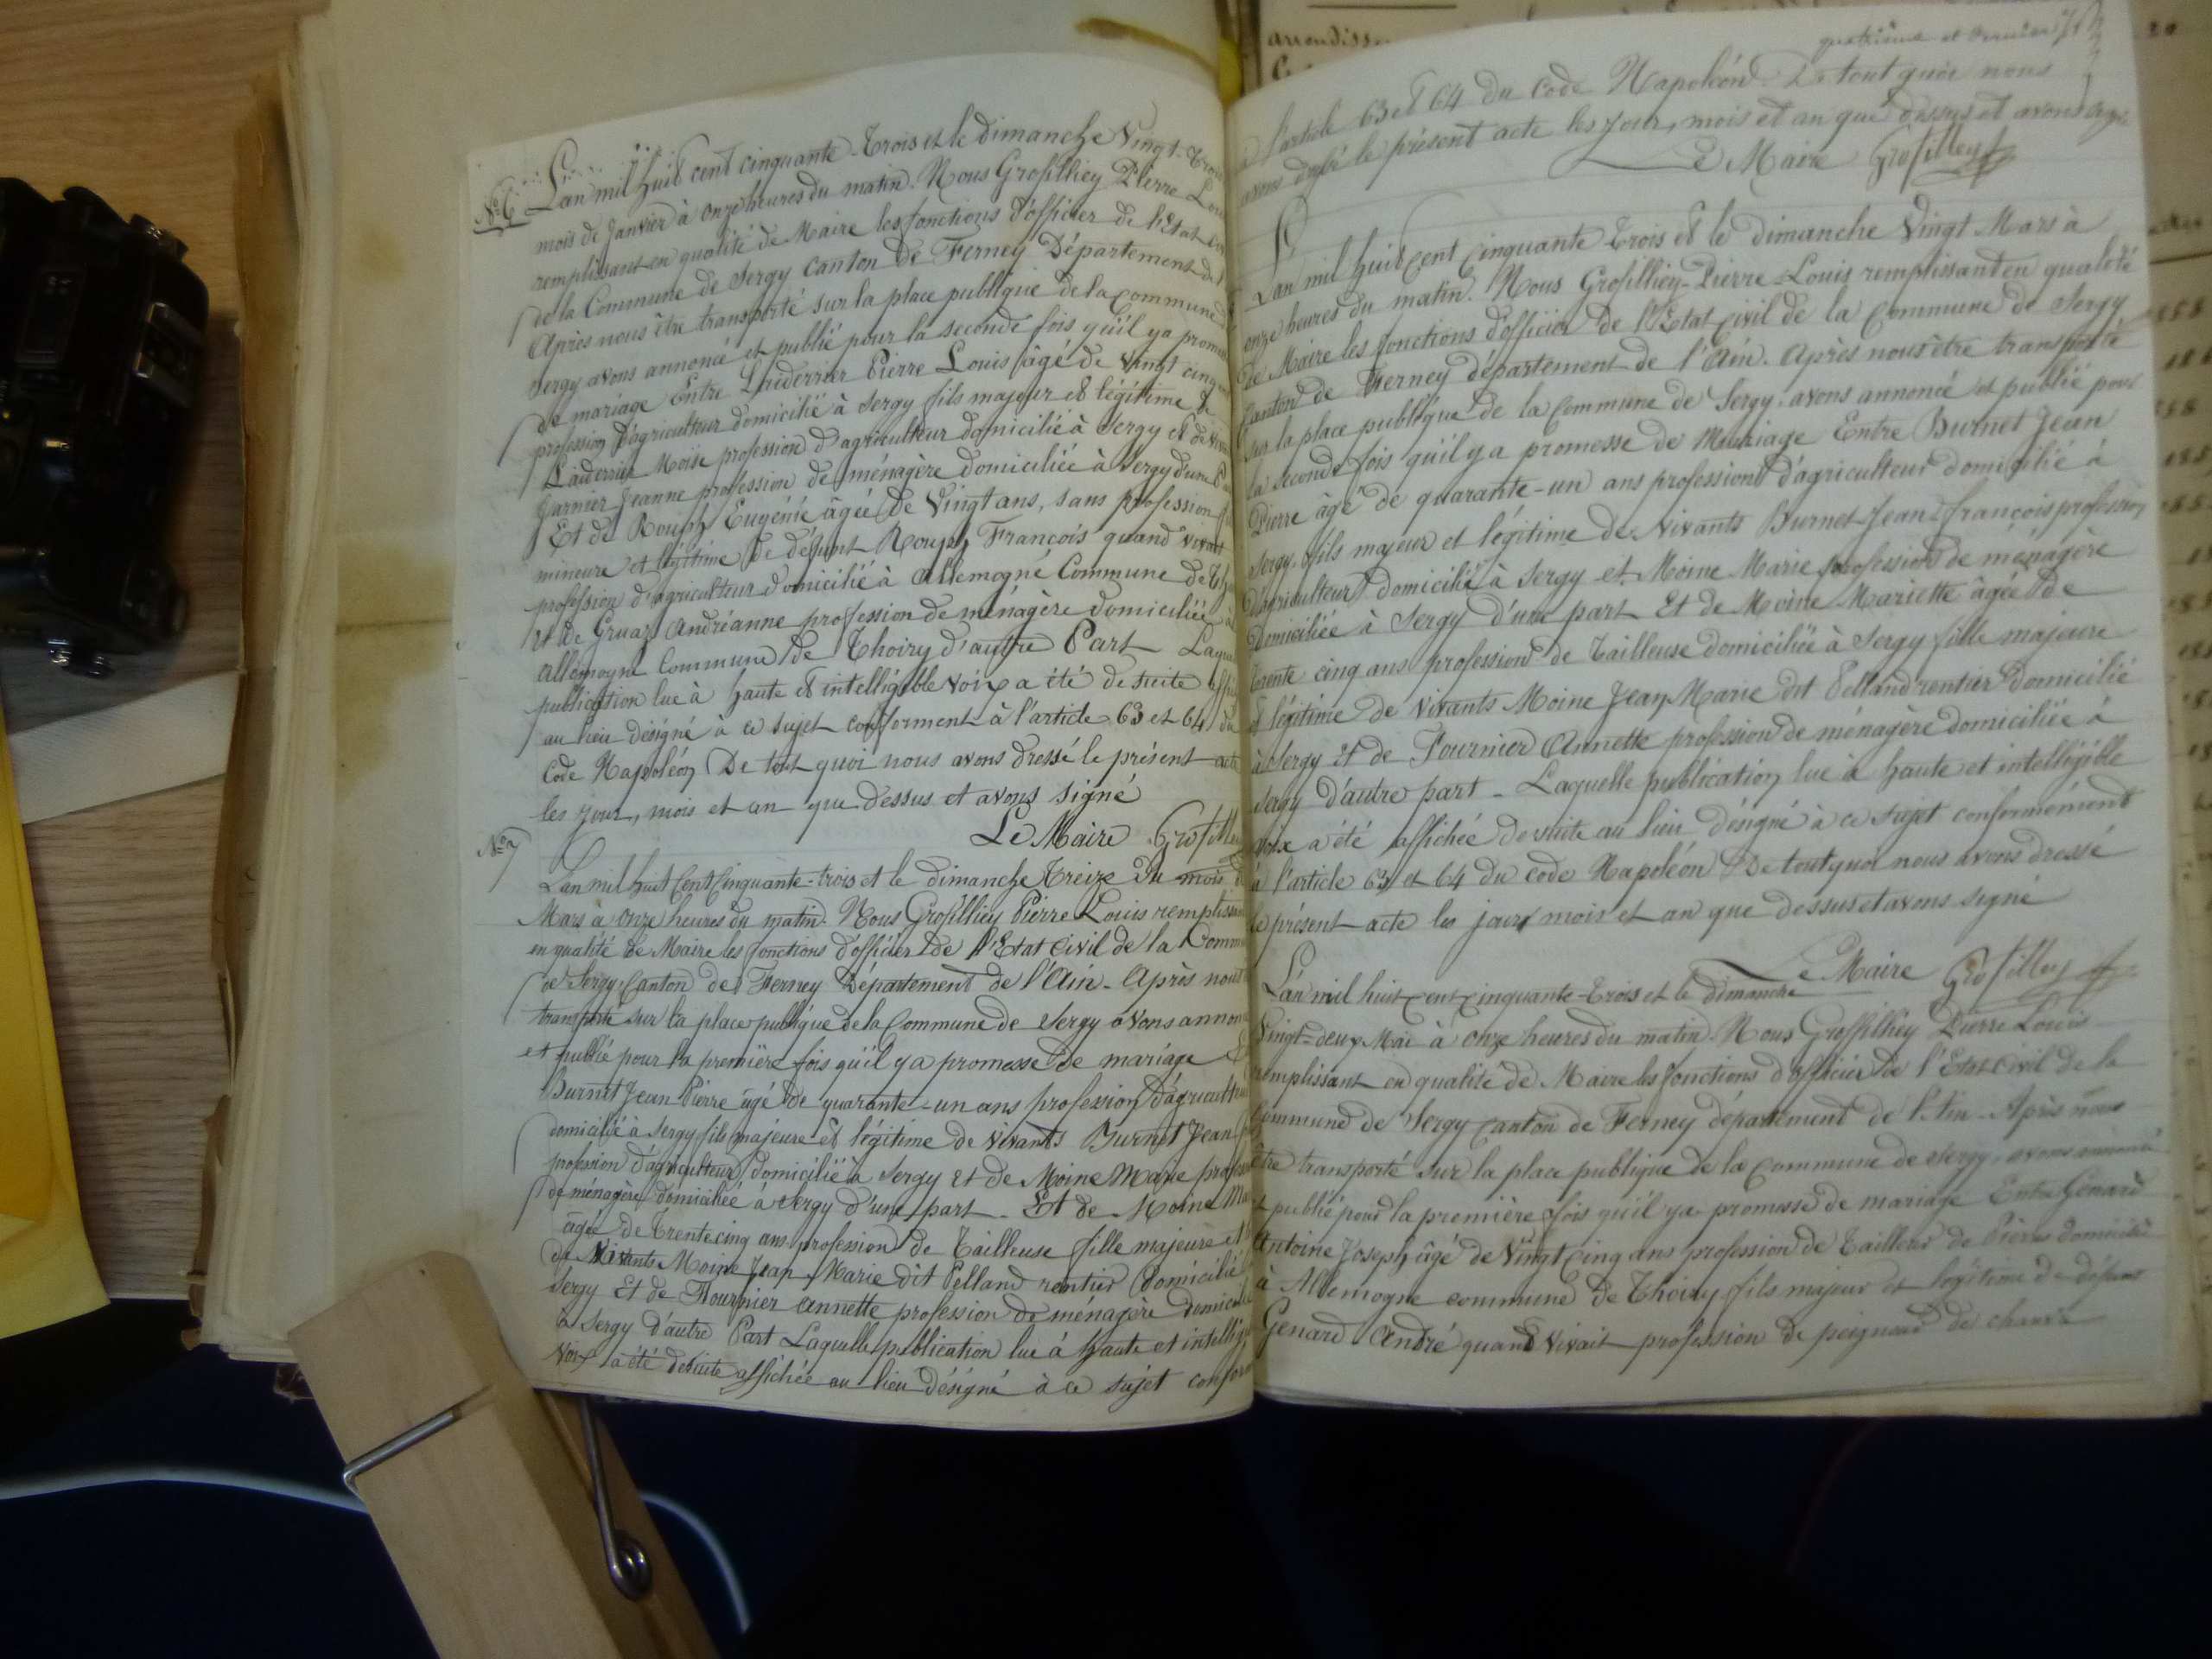 Nº 6
L'an mil huit cent cinquante-trois et le dimanche Vingt-trois
mois de Janvier à onze heures du matin. Nous Grosfilliey Pierre Louis
remplissant en qualité de Maire les fonctions d'officier de l'Etat
de la Commune de Sergy canton de Ferney Département de
Après nous être transporté sur la place publique de la commune de
Sergy avons annoncé et publié pour la seconde fois qu'il y a
de mariage Entre Laiderrier Pierre Louis âgé de vingt cinq
profession d'agriculteur domicilié à Sergy fils majeur et légitime de
Laiderrier Moise profession d'agriculteur domicilié à Sergy et de
Garnier Jeanne profession de ménagère domiciliée à Sergy d'une
Et de Rouph Eugénie âgée de Vingt ans, sans profession
mineure et légitime de défunt Rouph François quand vivait
profession d'agriculteur domicilié à Allemogne Commune de
et de Gruaz Andréanne profession de ménagère domiciliée à
Allemogne Commune de Thoiry d'autre Part
publication lue à haute et intelligible Voix a été de suite
au lieu désigné à ce sujet conforment à l'article 63 et 64 du
Code Napoléon De tout quoi nous avons dressé le présent acte
les jour, mois et an que dessus et avons signé
Le Maire
Nº 7
L'an mil huit Cent Cinquante-trois et le dimanche Treize du mois
Mars à onze heures du matin. Nous Grosfilliey Pierre Louis
en qualité de Maire les fonctions d'officier de l'Etat civil de la
de Sergy Canton de Ferney Département de l'Ain. Après nous
transporté sur la place publique de la Commune de Sergy avons
et publié pour la première fois qu'il y a promesse de mariage
Burnet Jean Pierre âgé de quarante-un ans profession
domicilié à Sergy fils majeure et légitime de vivants Burnet Jean
profession d'agriculteur domicilié à Sergy et de Moine Marie
de ménagère domiciliée à Sergy d'une part. Et de Moine
âgée de Trente cinq ans profession de Tailleuse fille majeure et
de Vivants Moine Jean Marie dit Pelland rentier domicilié
Sergy Et de Fournier Annette profession de ménagère
à Sergy d'autre Part Laquelle publication lue à haute et
Voix a été desuite affichée au lieu désigné à ce sujet
quatrième et dernier
l'article 63 et 64 du Code Napoléon. De tout quoi nous
avons dressé le présent acte les jour, mois et an que dessus et avons signé
Le Maire Grosfilley
L'an mil huit Cent Cinquante Trois et le dimanche Vingt Mars à
onze heures du matin. Nous Grosfilliey Pierre-Louis remplissant en qualité
de Maire les fonctions d'officier de l'Etat civil de la Commune de Sergy
Canton de Ferney département de l'Ain. Après nous être transporté
sur la place publique de la Commune de Sergy avons annoncé et publié pour
la seconde fois qu'il y a promesse de Mariage Entre Burnet Jean
Pierre âgé de quarante-un ans profession d'agriculteur domicilié à
Sergy fils majeur et légitime de Vivants Burnet Jean-françois profession
d'agriculteur domicilié à Sergy et Moine Marie profession de ménagère
domiciliée à Sergy d'une part Et de Moine Mariette âgée de
trente cinq ans profession de Tailleuse domiciliée à Sergy fille majeure
et légitime de vivants Moine Jean Marie dit Pelland rentier domicilié
à Sergy Et de Fournier Annette profession de ménagère domiciliée à
Sergy d'autre part - Laquelle publication lue à haute et intelligible
voix a été affichée desuite au lieu désigné à ce sujet conformément
à l'article 63 et 64 du code Napoléon De tout quoi nous avons dressé
le présent acte les jour, mois et an que dessus et avons signé
Le Maire Grosfilley
L'an mil huit cent cinquante-Trois et le dimanche
Vingt-deux Mai à onze heures du matin. Nous Grosfilliey Pierre Louis
remplissant en qualité de Maire les fonctions d'officier de l'Etat civil de la
Commune de Sergy Canton de Ferney département de l'Ain. Après nous
être transporté sur la place publique de la Commune de Sergy avons annoncé
et publié pour la première fois qu'il y a promesse de mariage Entre Génard
Antoine Joseph âgé de Vingt Cinq ans profession de Tailleur de Pierres domicilié
à Allemogne commune de Thoiry fils majeur et légitime de défunt
Genard André quand vivait profession de peigneur de chanvre